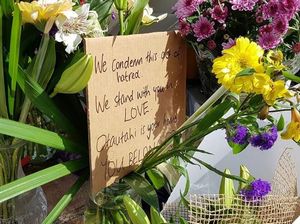 We condemn this act of
hatred.
We stand with you in
LOVE.
Ōtautahi is your home
YOU BELONG